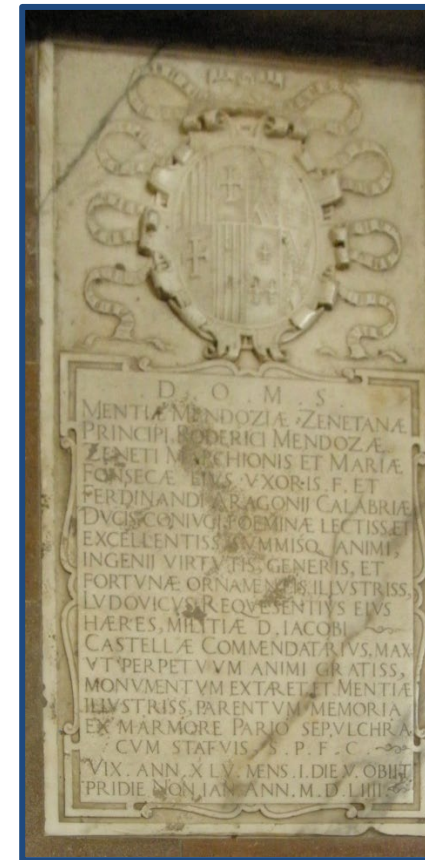 D. O. M. S.
MENTIÆ MENDOZIÆ ZENETANÆ
PRINCIPI, RODERICI MENDOZÆ
ZENETI MARCHIONIS ET MARIÆ
FONSECÆ EIUS VXORIS. F. ET
FERDINANDI ARAGONII CALABRIÆ
DVCIS CONIVGI, FOEMINÆ LECTISS, ET
EXCELLENTISS, SVMMISQ. ANIMI,
INGENII VIRTVTIS, GENERIS, ET
FORTVNÆ ORNAMENTIS, ILLVSTRISS,
LVDOVICVS REQVESENTIVS EIVS
HÆRES, MILITIÆ D. IACOBI
CASTELLÆ COMMENDATARIVS, MAX.
VT PERPETVVM ANIMI GRATISS,
MONVMENTVM EXTARET, ET MENTIÆ
ILLVSTRISS, PARENTVM MEMORIA
EX MARMORE PARIO SEPVLCHRA
CVM STATVIS. S. P. F. C.
VIX. ANN. XLV. MENS. I. DIE V. OBIIT
PRIDIE NON. IAN. ANN. M. D. LIIII